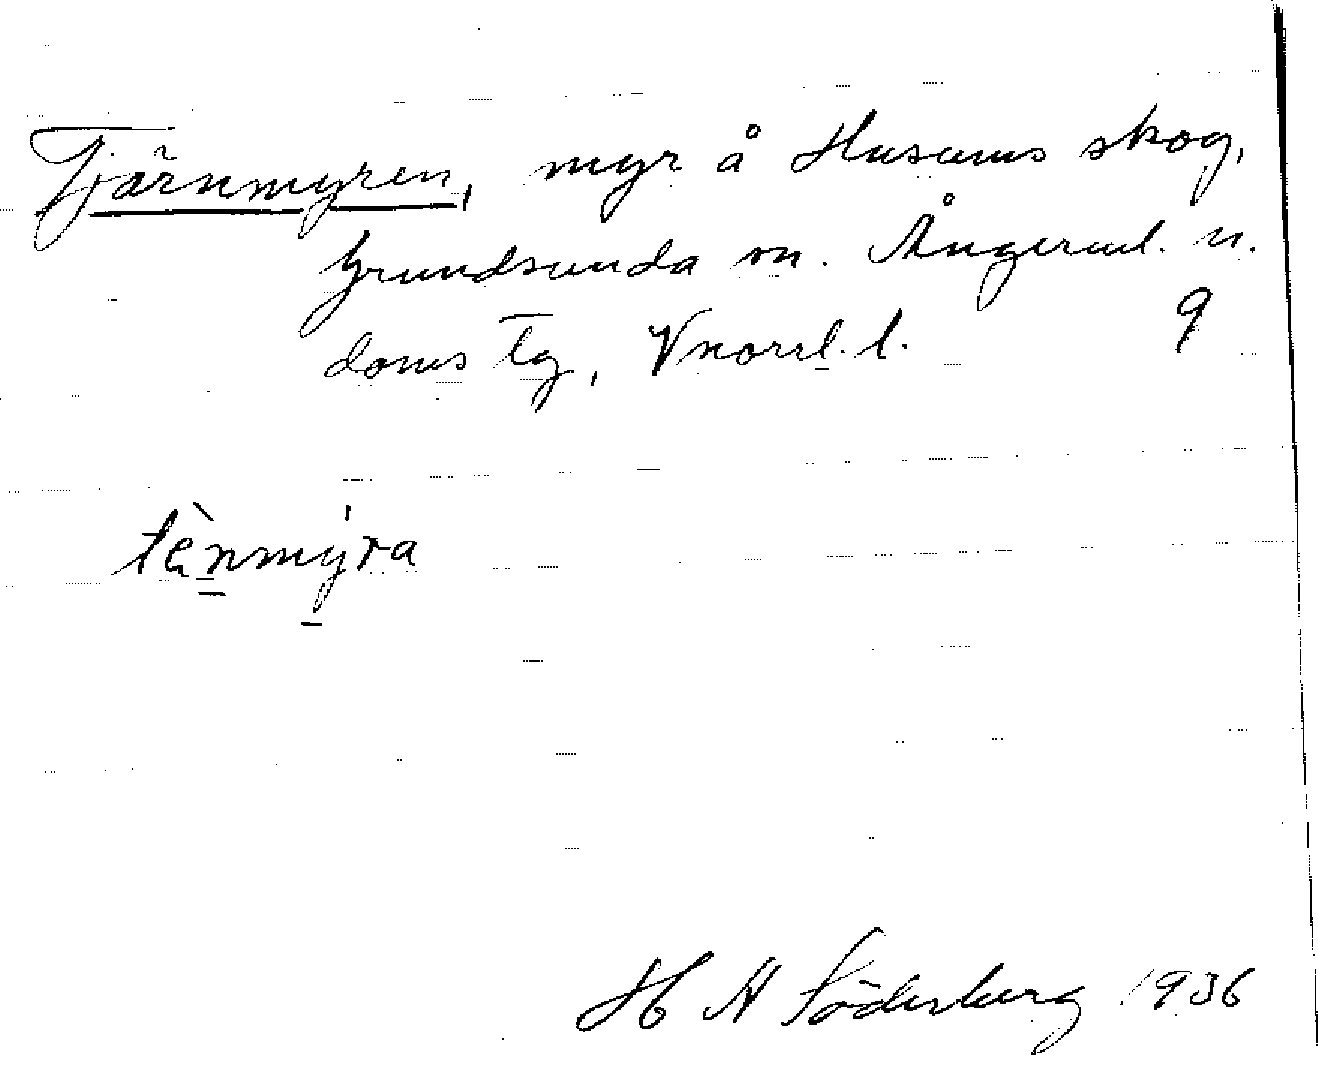 Tjärnmyren, myr å Husums skog,
Grundsunda sn. Ångerml. n.
doms tg, Vnorrl. l. 9
tènmyra
H A Söderberg 1936